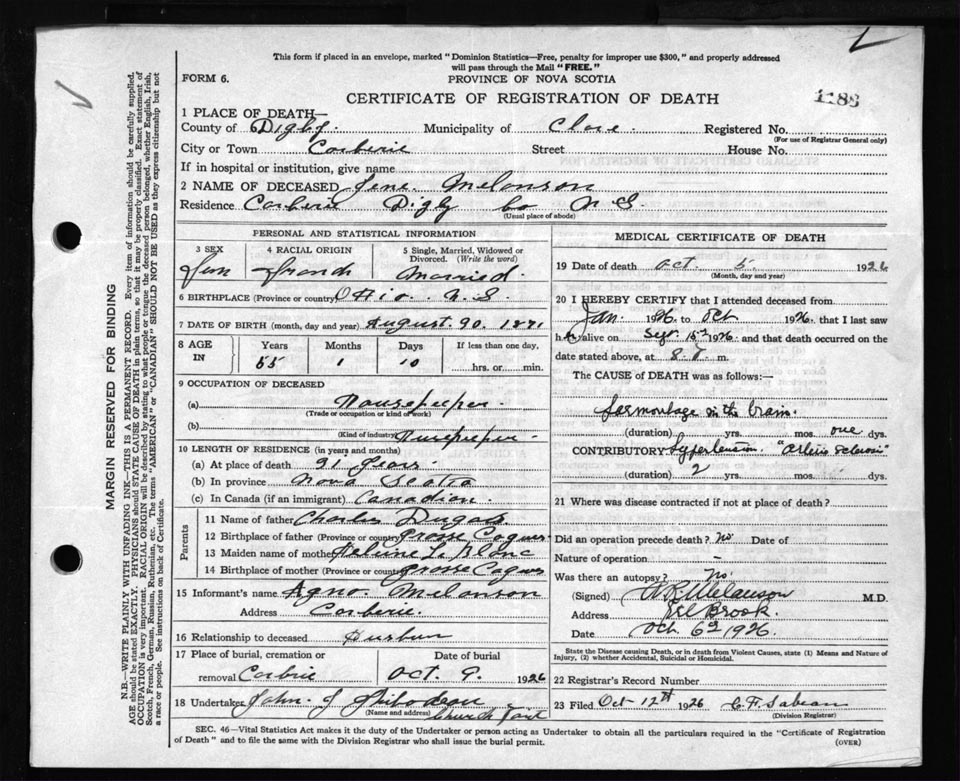 This form if placed in an envelope, marked "Dominion Statistics—Free, penalty for improper use $300," and properly addressed
will pass through the Mail "FREE."
FORM 6.
PROVINCE OF NOVA SCOTIA
CERTIFICATE OF REGISTRATION OF DEATH
1188
1 PLACE OF DEATH—
County of Digby Municipality of Clare Registered No.
(For use of Registrar General only)
City or Town Corberie Street House No.
If in hospital or institution, give name
2 NAME OF DECEASED Melonson
Residence Corberie Digby Co N S
(Usual place of abode)
PERSONAL AND STATISTICAL INFORMATION
3 SEX 4 RACIAL ORIGIN 5 Single, Married, Widowed or Divorced. (Write the word)
Fem Married
6 BIRTHPLACE (Province or country) Ohio. N. S.
7 DATE OF BIRTH (month, day and year) August 1871
8 AGE IN Years Months Days If less than one day,
55 1 10 hrs. or min.
9 OCCUPATION OF DECEASED
(a) Housekeeper
(Trade or occupation or kind of work)
(b)
(Kind of industry)
10 LENGTH OF RESIDENCE (in years and months)
(a) At place of death years
(b) In province Nova Scotia
(c) In Canada (if an immigrant) Canadian
Parents
11 Name of father Charles Dugas
12 Birthplace of father (Province or country) Grosse Coques
13 Maiden name of mother Le Blanc
14 Birthplace of mother (Province or country) Grosse Coques
15 Informant's name Melonson
Address Corberie.
16 Relationship to deceased Husbun
17 Place of burial, cremation or removal Date of burial
Corbrie Oct 9. 1926
18 Undertaker John J
(Name and address) Church Point
MEDICAL CERTIFICATE OF DEATH
19 Date of death Oct 5. 1926
(Month, day and year)
20 I HEREBY CERTIFY that I attended deceased from
Jan. 1926 to Oct 1926. that I last saw
her alive on Sept 15th 1926 and that death occurred on the
date stated above, at 8 m.
The CAUSE of DEATH was as follows:—
in the brain.
(duration) yrs. mos. one dys.
CONTRIBUTORY Hypertension
(duration) 2 yrs. mos. dys.
21 Where was disease contracted if not at place of death?
Did an operation precede death? No Date of
Nature of operation —
Was there an autopsy? No
(Signed) Melanson M.D.
Address Eel Brook
Date Oct 6th 1926
State the Disease causing Death, or in death from Violent Causes, state (1) Means and Nature of Injury, (2) whether Accidental, Suicidal or Homicidal.
22 Registrar's Record Number
23 Filed Oct 12th 1926 C. F. Sabean
(Division Registrar)
SEC. 46—Vital Statistics Act makes it the duty of the Undertaker or person acting as Undertaker to obtain all the particulars required in the "Certificate of Registration
of Death" and to file the same with the Division Registrar who shall issue the burial permit.
(OVER)
MARGIN RESERVED FOR BINDING
N.B.—WRITE PLAINLY WITH UNFADING INK—THIS IS A PERMANENT RECORD. Every item of information should be carefully supplied.
AGE should be stated EXACTLY. PHYSICIANS should STATE CAUSE OF DEATH in plain terms, so that it may be properly classified. Exact statement of
OCCUPATION is very important. RACIAL ORIGIN will be described by stating to what people or tongue the deceased person belonged, whether English, Irish,
Scotch, French, German, Russian, Ruthenian, etc. The terms "AMERICAN" or "CANADIAN" SHOULD NOT BE USED as they express citizenship but not
a race or people. See instructions on back of Certificate.